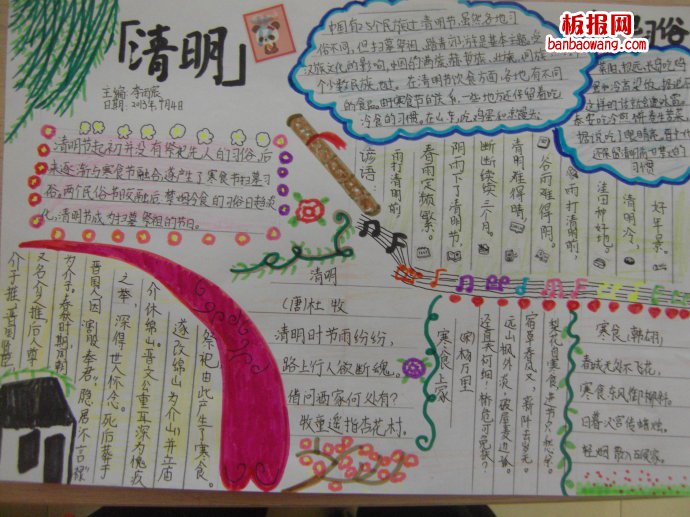 「清明」
主编：李雨宸
日期：2015年4月4日
板报网
banbaowang.com
习俗
清明节起初并没有祭祀先人的习俗，后
来逐渐与寒食节融合，逐产生了寒食节扫墓习
俗。两个民俗节段融后，禁烟冷食的习俗日趋淡
化，清明节成为扫墓祭祖的日子。
中国有25个民族过清明节，虽然各地习
俗不同，但扫墓祭祖、踏青郊游是基本主题。受
汉族文化的影响，中国的满族、赫哲族
个少数民族，也过。在清明节饮食方面，各地有不同
的食品。由寒食节的关系，一些地方还保留着吃
冷食的习惯。在山东，吃鸡蛋和
谚语：
雨打清明前
春雨定频繁。
阴雨下了清明节，
断断续续三个月。
清明难得晴，
谷雨难得阴。
雨打清明前，
洼田种好地。
清明冷，
好年景。
清明
（唐）杜 牧
清明时节雨纷纷，
路上行人欲断魂。
借问酒家何处有？
牧童遥指杏花村。
寒食上冢
（宋）杨万里
径直夫何细！桥危可免扶？
远山枫外淡，破屋麦边孤。
宿草春风又，新阡去岁无。
梨花自寒食，进节只愁余。
寒食 （韩翃）
春城无处不飞花，
寒食东风御柳斜。
日暮汉宫传蜡烛，
轻烟散入五侯家。
介子推，晋国贵族
又名介之推，后人尊
为介子。春秋时期
晋国人，因"割股奉君"，隐居"不言禄"
之举，深得世人怀念。死后葬于
介休绵山。晋文公重耳深为愧疚
遂改绵山为介山，并立庙
祭祀，由此产生了寒食。